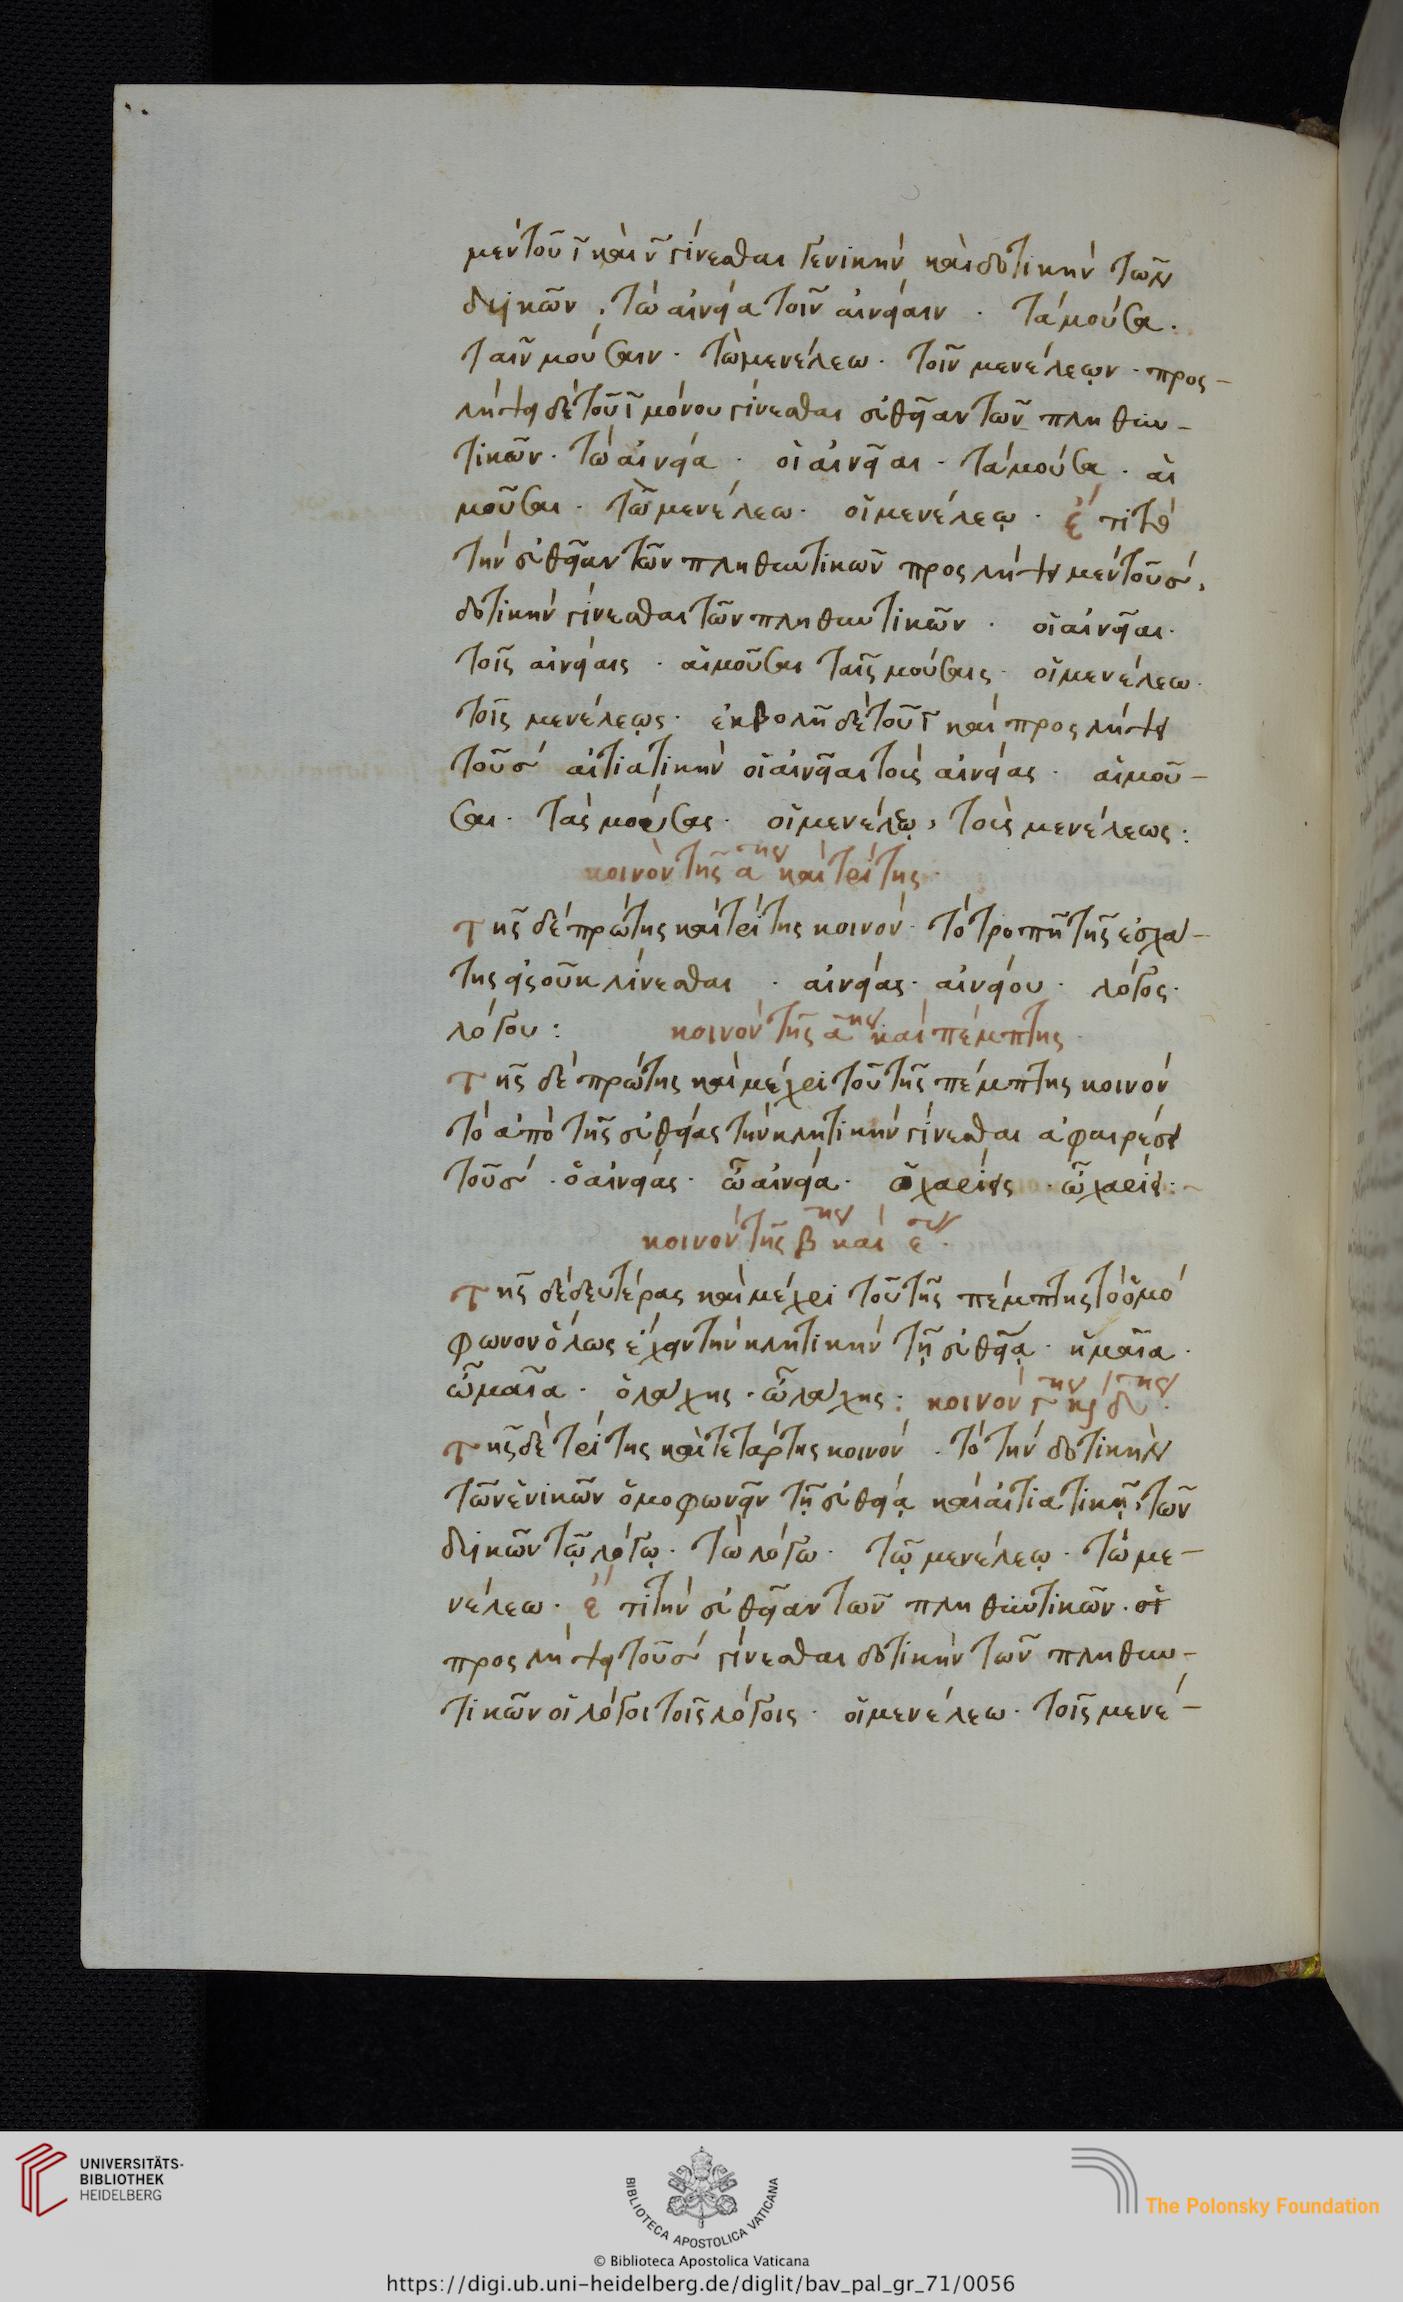 μὲν τοῦ ϊ καὶ ν̃ γίνεσθαι γενικὴν καὶ δοτικὴν τῶν
δυϊκῶν. τὼ αἰνεία τοῖν αἰνείαιν · τὰ μούσα ·
ταῖν μούσαιν · τὼ μενέλεω · τοῖν μενέλεῳν · προς-
λήψει δὲ τοῦ ϊ μόνου γίνεσθαι εὐθεῖαν τῶν πληθυν-
τικῶν · τὼ αἰνεία · οἱ αἰνεῖαι · τὰ μούσα · αἱ
μοῦσαι · τὼ μενέλεω · οἱ μενέλεῳ · ἔτι τὸ
τὴν εὐθεῖαν τῶν πληθυντικῶν προςλήψει μὲν τοῦ σ,
δοτικὴν γίνεσθαι τῶν πληθυντικῶν · οἱ αἰνεῖαι ·
τοῖς αἰνείαις · αἱ μοῦσαι ταῖς μούσαις · οἱ μενέλεω ·
τοῖς μενέλεῳς · ἐκβολῆ δὲ τοῦ ϊ καὶ προςλήψει
τοῦ σ αἰτιατικὴν οἱ αἰνεῖαι τοὺς αἰνείας · αἱ μοῦ-
σαι · τὰς μούσας · οἱ μενέλεῳ, τοὺς μενέλεως :
κοινὸν τῆς α ης καὶ τρίτης ·
τῆς δὲ πρώτης καὶ τρίτης κοινόν · τὸ τροπῆ τῆς ἐσχά-
της εἰς οῦ κλίνεσθαι · αἰνείας · αἰνείου · λόγος ·
λόγου : κοινὸν τῆς α ης καὶ πέμπτης ·
τῆς δὲ πρώτης καὶ μέχρι τοῦ τῆς πέμπτης κοινὸν
τὸ ἀπὸ τῆς εὐθείας τὴν κλητικὴν γίνεσθαι ἀφαιρέσει
τοῦ σ · ὁ αἰνείας · ὦ αἰνεία · ὁ χαρίεις · ὦ χαρίει : ~
κοινὸν τῆς β ης καὶ ε ης ·
τῆς δὲ δευτέρας καὶ μέχρι τοῦ τῆς πέμπτης τὸ ὁμό
φωνον ὅλως ἔχειν τὴν κλητικὴν τῇ εὐθείᾳ · ἡ μαῖα ·
ὦ μαῖα · ὁ λάχης · ὦ λάχης : κοινὸν γ ης κ̀ δ ης ·
τῆς δὲ τρίτης καὶ τετάρτης κοινόν · τὸ τὴν δοτικὴν
τῶν ἑνικῶν ὁμοφωνεῖν τῇ εὐθείᾳ καὶ αἰτιατικῇ, τῶν
δυϊκῶν τῷ λόγῳ · τὼ λόγω · τῷ μενέλεῳ · τὼ με-
νέλεω · ἔτι τὴν εὐθεῖαν τῶν πληθυντικῶν ·
προςλήψει τοῦ σ γίνεσθαι δοτικὴν τῶν πληθυν-
τικῶν οἱ λόγοι τοῖς λόγοις · οἱ μενέλεω · τοῖς μενέ-
UNIVERSITÄTS-
BIBLIOTHEK
HEIDELBERG
BIBLIOTECA APOSTOLICA VATICANA
The Polonsky Foundation
© Biblioteca Apostolica Vaticana
https://digi.ub.uni-heidelberg.de/diglit/bav_pal_gr_71/0056